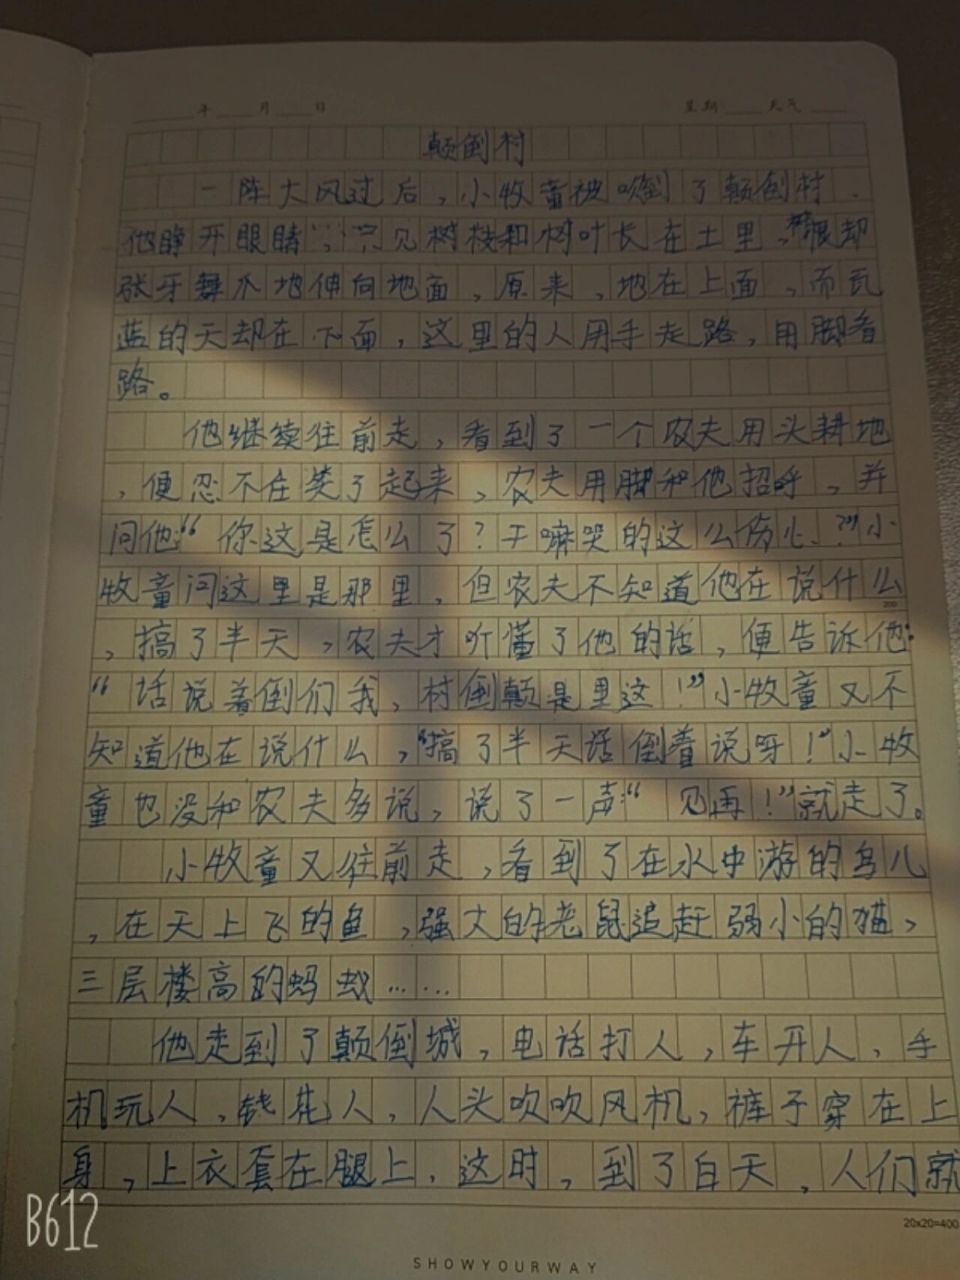 年 月 日 星期 天气
颠倒村
一阵大风过后，小牧童被吹到了颠倒村.
他睁开眼睛，只见树枝和树叶长在土里，树根却
张牙舞爪地伸向地面，原来，地在上面，而瓦
蓝的天却在下面，这里的人用手走路，用脚看
路。
他继续往前走，看到了一个农夫用头耕地
，便忍不住笑了起来，农夫用脚和他招呼，并
问他“你这是怎么了？干嘛哭的这么伤心？”小
牧童问这里是那里，但农夫不知道他在说什么
200
，搞了半天，农夫才听懂了他的话，便告诉他：
“话说着倒们我，村倒颠是里这！”小牧童又不
知道他在说什么，“搞了半天话倒着说呀！”小牧
童也没和农夫多说，说了一声“见再！”就走了。
小牧童又往前走，看到了在水中游的鸟儿
，在天上飞的鱼，强大的老鼠追赶弱小的猫，
三层楼高的蚂蚁……
他走到了颠倒城，电话打人，车开人，手
机玩人，钱花人，人头吹吹风机，裤子穿在上
身，上衣套在腿上，这时，到了白天，人们就
20x20=400
SHOWYOURWAY
B612